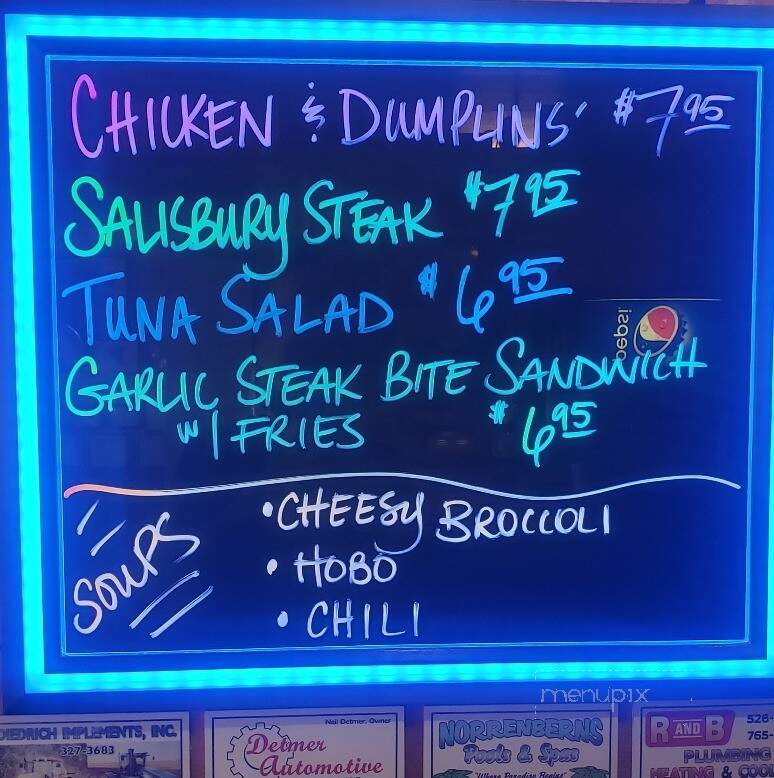 CHICKEN & DUMPLINS' $7.95
SALISBURY STEAK $7.95
TUNA SALAD $6.95
GARLIC STEAK BITE SANDWICH
w/ FRIES $6.95
SOUPS
• CHEESY BROCCOLI
• HOBO
• CHILI
pepsi
menupix
DIEDRICH IMPLEMENTS, INC.
327-3683
Neil Detmer, Owner
Detmer
Automotive
NORRENBERNS
Pools & Spas
"Where Paradise Begins"
R AND B
526-
765-
PLUMBING
& COO